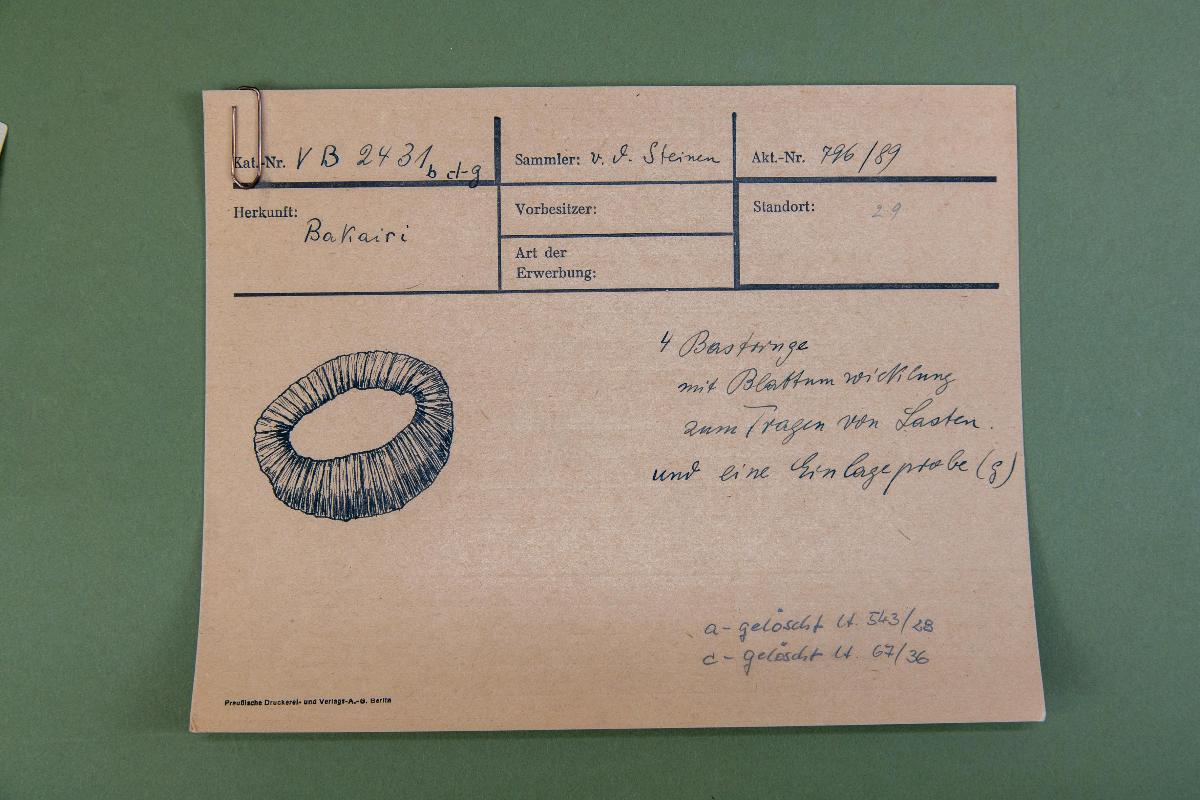 Kat.-Nr. V B 2431 b d-g
Sammler: v. d. Steinen
Akt.-Nr. 796/89
Herkunft: Bakairi
Vorbesitzer:
Art der
Erwerbung:
Standort: 29
4 Bastringe
mit Blattumwicklung
zum Tragen von Lasten.
und eine Einlageprobe (g)
a- gelöscht lt. 543/28
c- gelöscht lt. 67/36
Preußische Druckerei- und Verlags-A.-G. Berlin